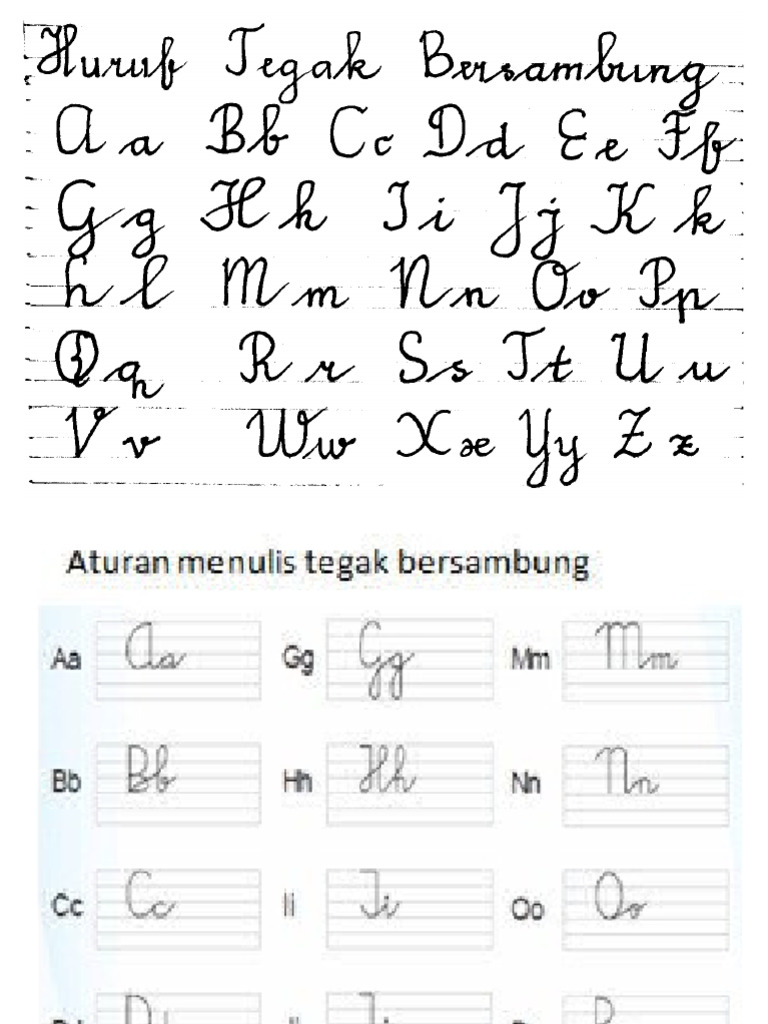 Huruf Tegak Bersambung
A a Bb Cc Dd Ee Ff
Gg Hh Ii Jj Kk
h l Mm Nn Oo Pp
Qq Rr Ss Tt Uu
Vv Ww Xx Yy Zz
Aturan menulis tegak bersambung
Aa Aa Gg Gg Mm Mm
Bb Bb Hh Hh Nn Nn
Cc Cc Ii Ii Oo Oo